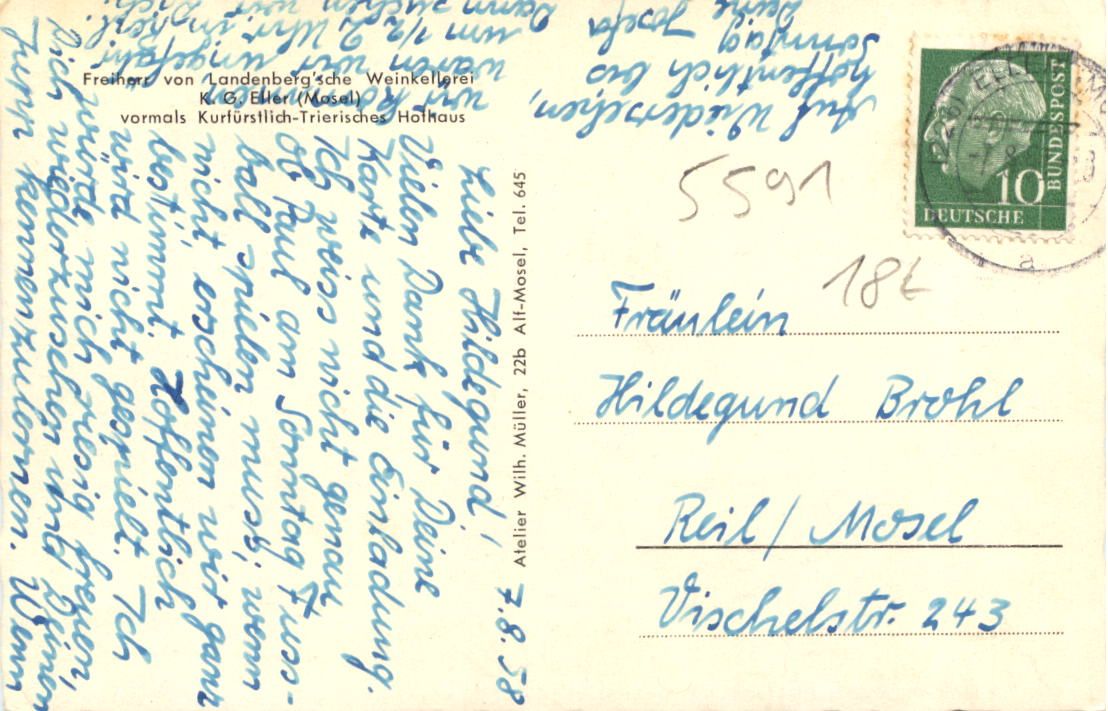 Freiherr von Landenberg'sche Weinkellerei
K. G. Eller (Mosel)
vormals Kurfürstlich-Trierisches Hofhaus
7.8.58
Liebe Hildegund!
Vielen Dank für Deine
Karte und die Einladung.
Ich weiss nicht genau
ob Paul am Sonntag Fuss-
ball spielen muss; wenn
nicht, erscheinen wir ganz
bestimmt. Hoffentlich
wird nicht gespielt. Ich
würde mich riesig freuen,
Dich wiederzusehen und Deinen
Jupp kennenzulernen. Wenn
wir kommen
wären wir ungefähr
um 1/2 2 Uhr in Reil.
Dann suchen wir Dich.
Auf Wiedersehen,
hoffentlich bis
Sonntag
Deine Josefa
Atelier Wilh. Müller, 22b Alf-Mosel, Tel. 645
10
DEUTSCHE
BUNDESPOST
(22b) ELLER
a
5591
18€
Fräulein
Hildegund Brohl
Reil / Mosel
Vischelstr. 243